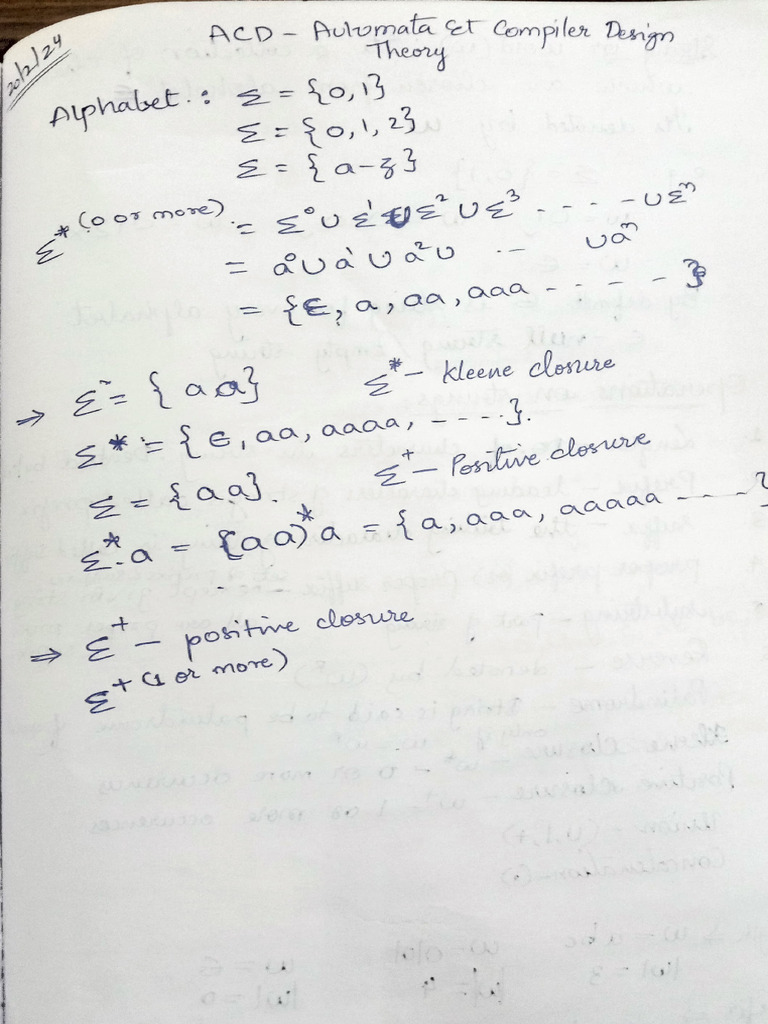 20/2/24
ACD - Automata & Compiler Design
Theory
Alphabet : Σ = {0,1}
Σ = {0,1,2}
Σ = {a-z}
Σ* (0 or more) = Σ⁰ ∪ Σ¹ ∪ Σ² ∪ Σ³ - - - - - ∪ Σⁿ
= a⁰ ∪ a¹ ∪ a² ∪ - - - ∪ aⁿ
= {ε, a, aa, aaa - - - - - }
⇒ Σ = {aa} Σ* - kleene closure
Σ* = {ε, aa, aaaa, - - - - }.
Σ = {aa}. Σ⁺ - Positive closure
Σ*.a = (aa)*a = {a, aaa, aaaaa - - - - }
⇒ Σ⁺ - positive closure
Σ⁺ (1 or more)